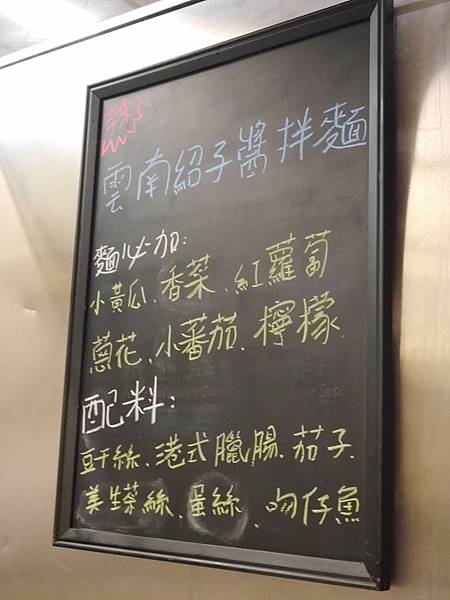 辣
雲南紹子醬拌麵
麵必加:
小黃瓜、香菜、紅蘿蔔
蔥花、小蕃茄、檸檬
配料:
豆干絲、港式臘腸、茄子、
美生菜絲、蛋絲、吻仔魚